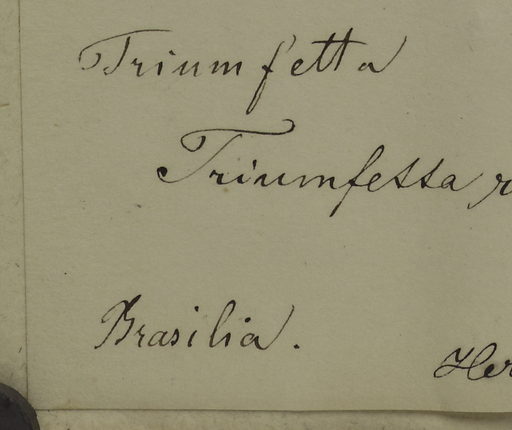 Triumfetta
Triumfetta r
Brasilia.
Her